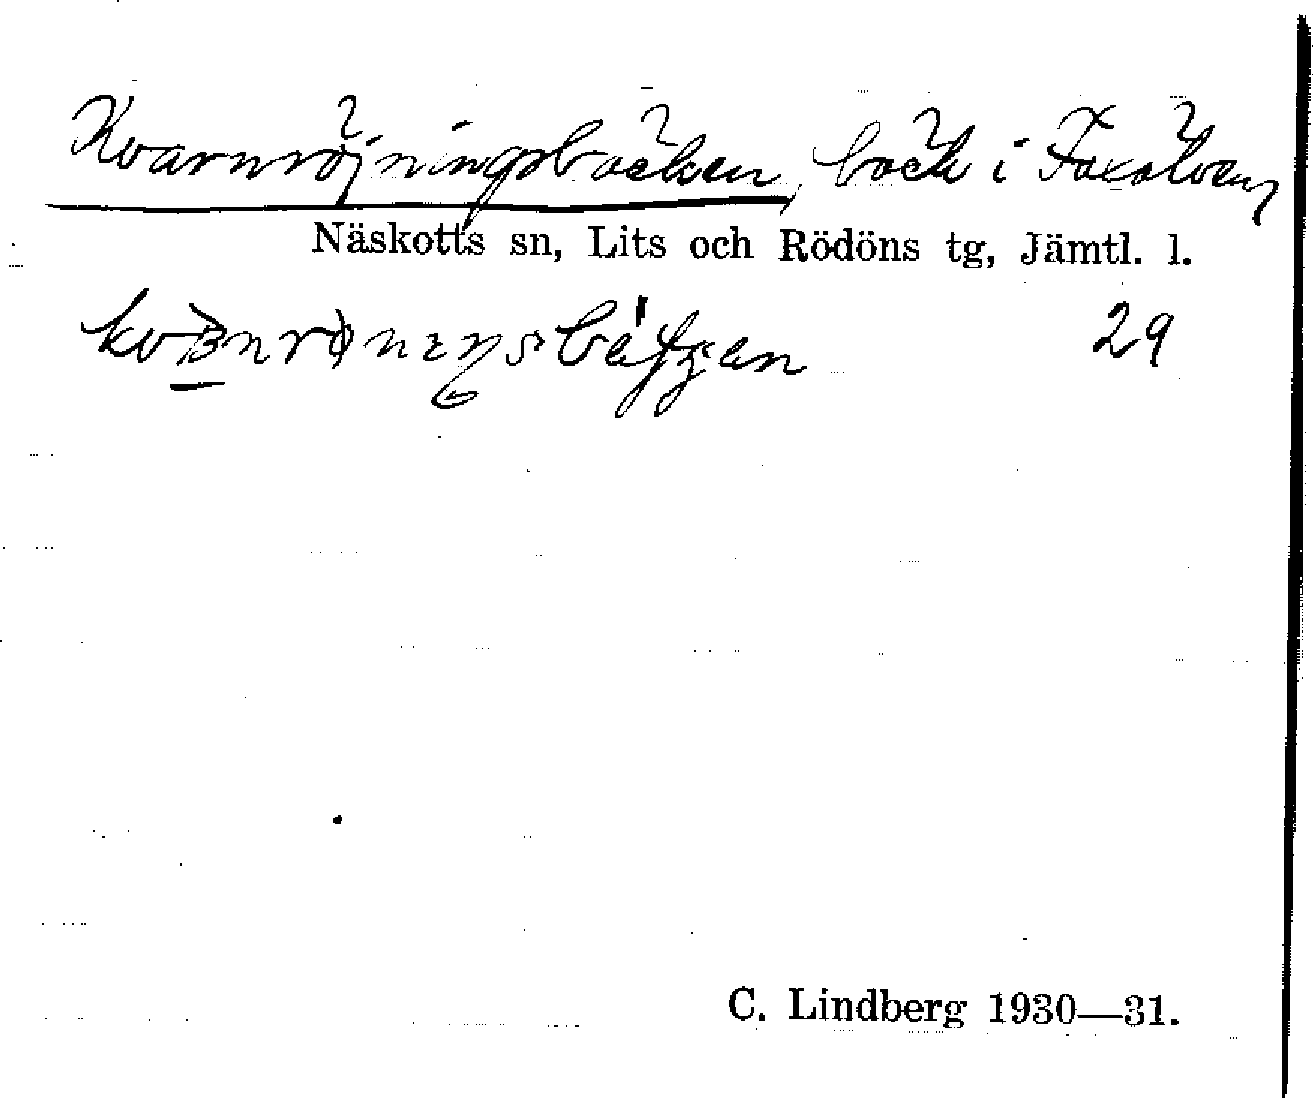 Kvarnröjningsbäcken, bäck i Faxälven,
Näskotts sn, Lits och Rödöns tg, Jämtl. l.
29
C. Lindberg 1930—31.